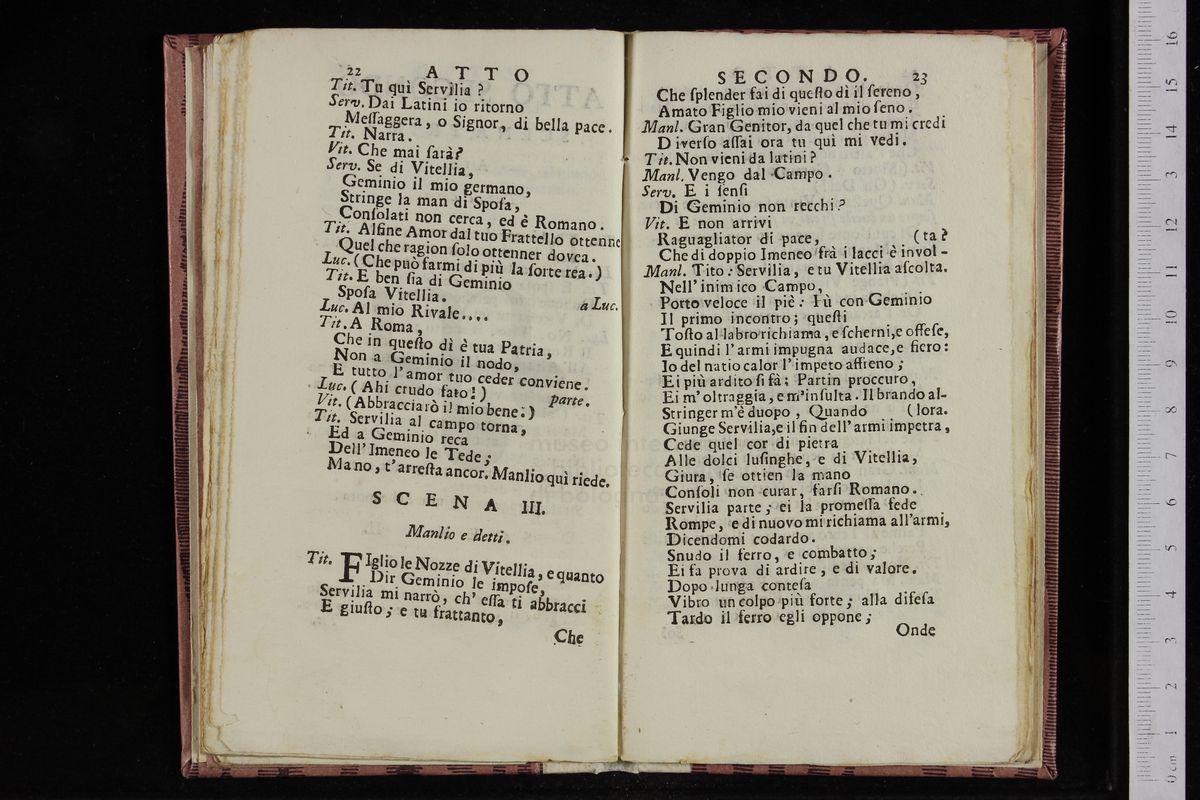 22 ATTO
Tit. Tu quì Servilia ?
Serv. Dai Latini io ritorno
Meſſaggera, o Signor, di bella pace.
Tit. Narra.
Vit. Che mai ſarà?
Serv. Se di Vitellia,
Geminio il mio germano,
Stringe la man di Spoſa,
Conſolati non cerca, ed è Romano.
Tit. Alfine Amor dal tuo Frattello ottenne
Quel che ragion ſolo ottenner dovea.
Luc. (Che può farmi di più la ſorte rea.)
Tit. E ben ſia di Geminio
Spoſa Vitellia. a Luc.
Luc. Al mio Rivale....
Tit. A Roma,
Che in queſto dì è tua Patria,
Non a Geminio il nodo,
E tutto l'amor tuo ceder conviene.
Luc. (Ahi crudo fato!) parte.
Vit. (Abbracciarò il mio bene.)
Tit. Servilia al campo torna,
Ed a Geminio reca
Dell'Imeneo le Tede;
Ma no, t'arreſta ancor. Manlio quì riede.
SCENA III.
Manlio e detti.
Tit. FIglio le Nozze di Vitellia, e quanto
Dir Geminio le impoſe,
Servilia mi narrò, ch' eſſa ti abbracci
E giuſto; e tu frattanto,
Che
SECONDO. 23
Che ſplender fai di queſto dì il ſereno,
Amato Figlio mio vieni al mio ſeno.
Manl. Gran Genitor, da quel che tu mi credi
Diverſo aſſai ora tu quì mi vedi.
Tit. Non vieni da latini?
Manl. Vengo dal Campo.
Serv. E i ſenſi
Di Geminio non recchi?
Vit. E non arrivi
Raguagliator di pace, (ta?
Che di doppio Imeneo frà i lacci è invol-
Manl. Tito: Servilia, e tu Vitellia aſcolta.
Nell' inimico Campo,
Porto veloce il piè: Fù con Geminio
Il primo incontro; queſti
Toſto al labro richiama, e ſcherni, e offeſe,
E quindi l'armi impugna audace, e fiero:
Io del natio calor l'impeto affreno;
Ei più ardito ſi fà; Partin proccuro,
Ei m'oltraggia, e m'inſulta. Il brando al-
Stringer m'è duopo, Quando (lora.
Giunge Servilia, e il fin dell'armi impetra,
Cede quel cor di pietra
Alle dolci luſinghe, e di Vitellia,
Giura, ſe ottien la mano
Conſoli non curar, farſi Romano.
Servilia parte; ei la promeſſa fede
Rompe, e di nuovo mi richiama all'armi,
Dicendomi codardo.
Snudo il ferro, e combatto;
Ei fa prova di ardire, e di valore.
Dopo lunga conteſa
Vibro un colpo più forte; alla difeſa
Tardo il ferro egli oppone;
Onde